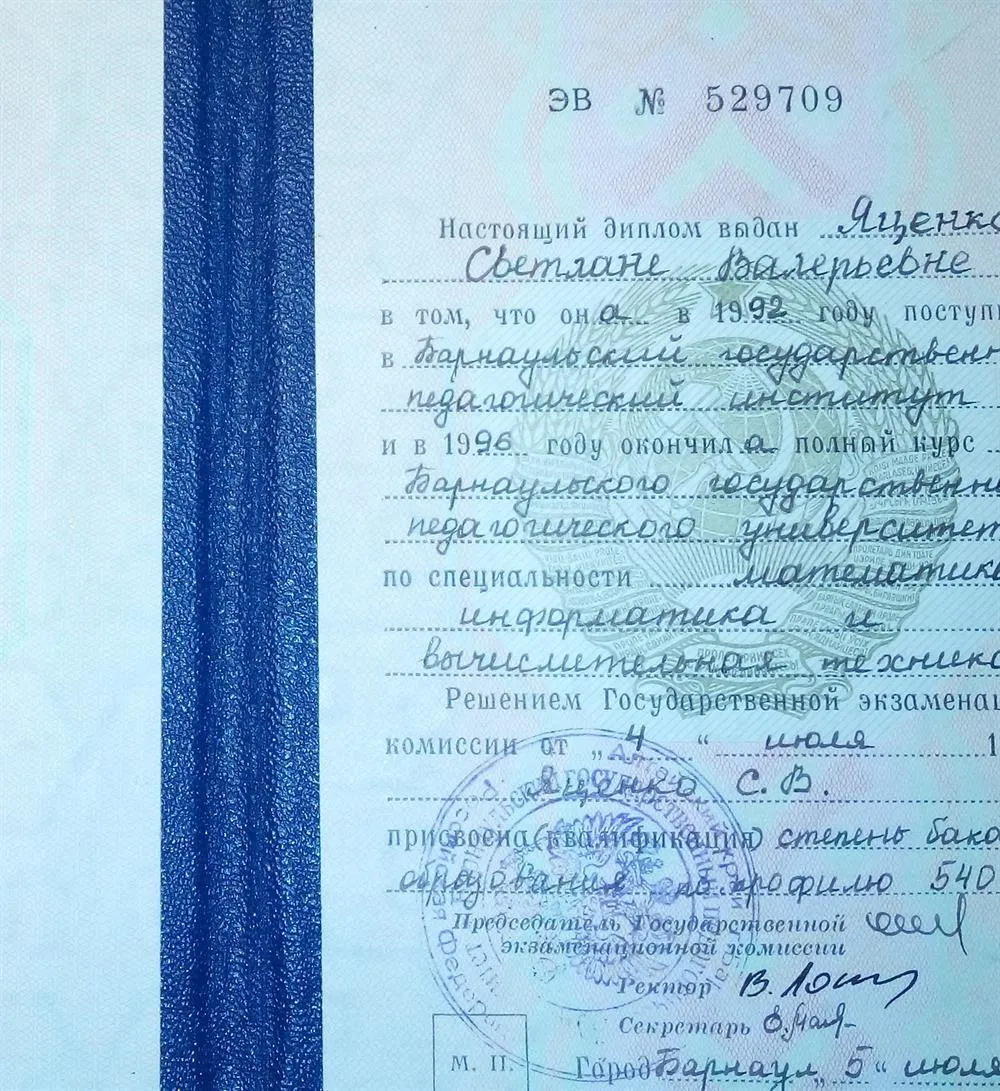 ЭВ № 529709
Настоящий диплом выдан Яценко
Светлане Валерьевне
в том, что она в 1992 году поступи
в Барнаульский государственн
педагогический институт
и в 1996 году окончила полный курс
Барнаульского государственно
педагогического университет
по специальности математика
информатика и
вычислительная техника
Решением Государственной экзаменац
комиссии от „4“ июля 1
Яценко С.В.
присвоена (квалификация) степень бака
образования по профилю 540
Председатель Государственной
экзаменационной комиссии
Ректор
Секретарь
М. П.
Город Барнаул, 5 “ июля